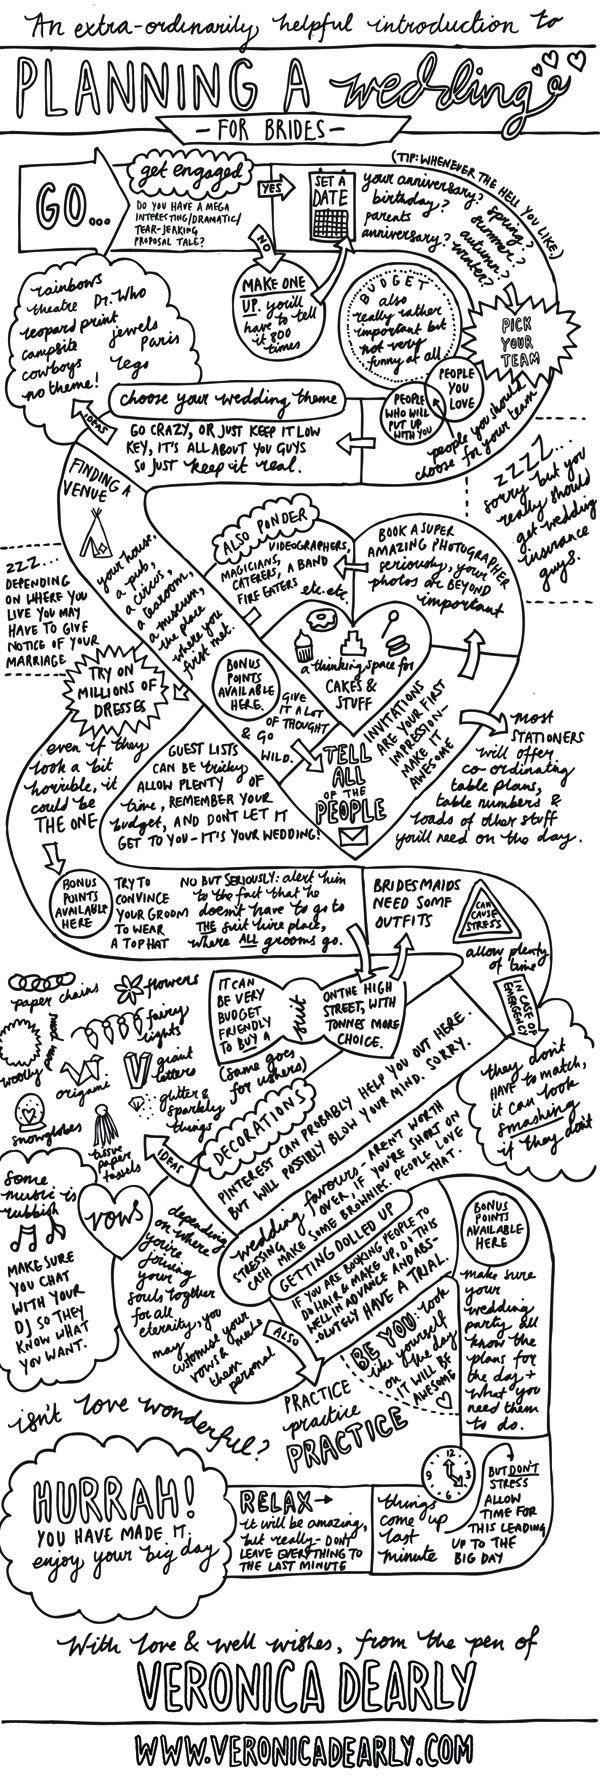 An extra-ordinarily helpful introduction to
PLANNING A wedding
- FOR BRIDES -
GO...
get engaged
DO YOU HAVE A MEGA
INTERESTING/DRAMATIC/
TEAR-JERKING
PROPOSAL TALE?
YES
NO
MAKE ONE
UP. you'll
have to tell
it 800
times
SET A
DATE
(TIP: WHENEVER THE HELL YOU LIKE.)
your anniversary?
birthday?
parents
anniversary?
spring?
summer?
autumn?
winter?
PICK
YOUR
TEAM
BUDGET
also
really rather
important but
not very
funny at all.
PEOPLE
YOU
LOVE
PEOPLE
WHO WILL
PUT UP
WITH YOU
people you should
choose for your team
zzzz...
sorry but you
really should
get wedding
insurance
guys.
choose your wedding theme
GO CRAZY, OR JUST KEEP IT LOW
KEY, IT'S ALL ABOUT YOU GUYS
SO JUST keep it real.
IDEAS
rainbows
theatre Dr. Who
leopard print
jewels
campsite Paris
cowboys
lego
no theme!
FINDING A
VENUE
your house,
a pub,
a circus,
a tearoom,
a museum,
the place
where you
first met.
zzz...
DEPENDING
ON WHERE YOU
LIVE YOU MAY
HAVE TO GIVE
NOTICE OF YOUR
MARRIAGE
BONUS
POINTS
AVAILABLE
HERE.
GIVE
IT A LOT
OF THOUGHT
& GO
WILD.
TELL
ALL
OF THE
PEOPLE
INVITATIONS
ARE YOUR FIRST
IMPRESSION-
MAKE IT
AWESOME
most
STATIONERS
will offer
co-ordinating
table plans,
table numbers &
loads of other stuff
you'll need on the day.
BOOK A SUPER
AMAZING PHOTOGRAPHER
seriously, your
photos are BEYOND
important
ALSO PONDER
VIDEOGRAPHERS,
MAGICIANS,
CATERERS, A BAND
FIRE EATERS
etc. etc.
a thinking space for
CAKES &
STUFF
GUEST LISTS
CAN BE tricky
ALLOW PLENTY OF
time, REMEMBER YOUR
budget, AND DON'T LET IT
GET TO YOU - IT'S YOUR WEDDING!
TRY ON
MILLIONS OF
DRESSES
even if they
look a bit
horrible, it
could be
THE ONE
BONUS
POINTS
AVAILABLE
HERE
TRY TO
CONVINCE
YOUR GROOM
TO WEAR
A TOP HAT
NO BUT SERIOUSLY: alert him
to the fact that he
doesn't have to go to
THE suit hire place,
where ALL grooms go.
IT CAN
BE VERY
BUDGET
FRIENDLY
TO BUY A
suit
ON THE HIGH
STREET, WITH
TONNES MORE
CHOICE.
(same goes
for ushers)
BRIDESMAIDS
NEED SOME
OUTFITS
CAN
CAUSE
STRESS
allow plenty
of time
IN CASE OF
EMERGENCY
they don't
HAVE to match,
it can look
smashing
if they don't
DECORATIONS
PINTEREST CAN PROBABLY HELP YOU OUT HERE.
BUT WILL POSSIBLY BLOW YOUR MIND. SORRY.
IDEAS
paper chains
flowers
woolly
pom poms
fairy
lights
origami
giant
letters
snowglobes
tissue
paper
tassels
glitter &
sparkly
things
wedding favours AREN'T WORTH
STRESSING OVER, IF YOU'RE SHORT ON
CASH MAKE SOME BROWNIES. PEOPLE LOVE
THAT.
vows
depending
on where
you're
joining
your
souls together
for all
eternity, you
may
customise your
vows & make
them
personal
ALSO
PRACTICE
practice
PRACTICE
Some
music is
rubbish
MAKE SURE
YOU CHAT
WITH YOUR
DJ SO THEY
KNOW WHAT
YOU WANT.
GETTING DOLLED UP
IF YOU ARE BOOKING PEOPLE TO
DO HAIR & MAKE UP, DO THIS
WELL IN ADVANCE AND ABS-
OLUTELY HAVE A TRIAL.
BE YOU: look
like yourself
on the day
IT WILL BE
AWESOME
BONUS
POINTS
AVAILABLE
HERE
make sure
your
wedding
party all
know the
plans for
the day +
what you
need them
to do.
BUT DON'T
STRESS
ALLOW
TIME FOR
THIS LEADING
UP TO THE
BIG DAY
12
3
6
9
things
come up
last
minute
RELAX
it will be amazing,
but really - DON'T
LEAVE EVERYTHING TO
THE LAST MINUTE
isn't love wonderful?
HURRAH!
YOU HAVE MADE IT,
enjoy your big day
With love & well wishes, from the pen of
VERONICA DEARLY
WWW.VERONICADEARLY.COM